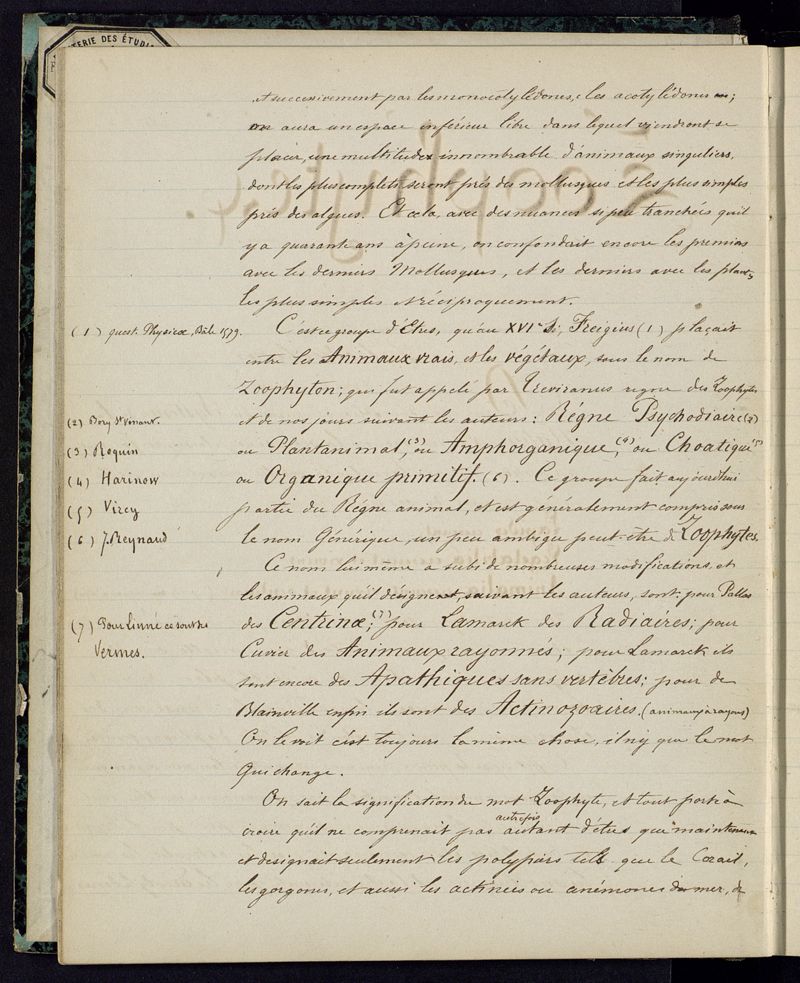 TERIE DES ÉTUDI
et successivement par les monocotylédones, les acotylédones ;
on aura un espace inférieur libre dans lequel viendront se
placer, une multitude innombrable d'animaux singuliers,
dont les plus complets seront près des mollusques et les plus simples
près des algues. Et cela, avec des nuances si peu tranchées qu'il
y a quarante ans à peine, on confondait encore les premiers
avec les derniers Mollusques, et les derniers avec les plantes
les plus simples et réciproquement.
(1) quest. Physicæ, Bâle 1579.
C'est ce groupe d'Etres, qu'au XVIe S., Freigius (1) plaçait
entre les Animaux vrais, et les végétaux, sous le nom de
Zoophyton; qui fut appelé par Treviranus regne des Zoophytes
(2) Bory St Vincent.
et de nos jours suivant les auteurs: Régne Psychodiaire (2)
(3) Roquin
ou Plantanimal, (3) ou Amphorganique, (4) ou Chaotique (5)
(4) Harinow
ou Organique primitif. (6). Ce groupe fait aujourd'hui
(5) Virey
partie du Régne animal, et est généralement compris sous
(6) J. Reynaud
le nom Générique, un peu ambigu peut-être de Zoophytes.
Ce nom lui même a subi de nombreuses modifications, et
les animaux qu'il désignent, suivant les auteurs, sont: pour Pallas
(7) Pour Linné ce sont les
des Centrinæ; (7) pour Lamarck des Radiaires; pour
Vermes.
Cuvier des Animaux rayonnés; pour Lamarck ils
sont encore des Apathiques sans vertèbres; pour de
Blainville enfin ils sont des Actinozoaires. (animaux à rayons)
On le voit c'est toujours la même chose, il n'y que le mot
qui change.
On sait la signification du mot Zoophyte, et tout porte à
croire qu'il ne comprenait pas autrefois autant d'êtres que maintenant
et designait seulement les polypiers tels que le Corail,
les gorgones, et aussi les actinies ou anémones de mer, de